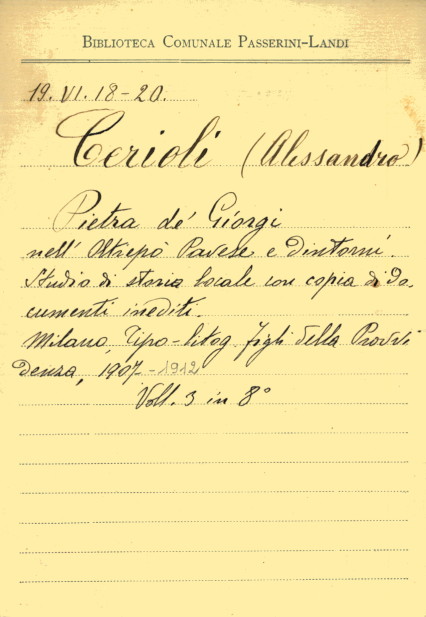 BIBLIOTECA COMUNALE PASSERINI-LANDI
19. VI. 18-20.
Cerioli (Alessandro)
Pietra de' Giorgi
nell' Oltrepò Pavese e dintorni.
Studio di storia locale con copia di do-
cumenti inediti.
Milano, Tipo-litog. figli della Provvi
denza, 1907-1912
Voll. 3 in 8°